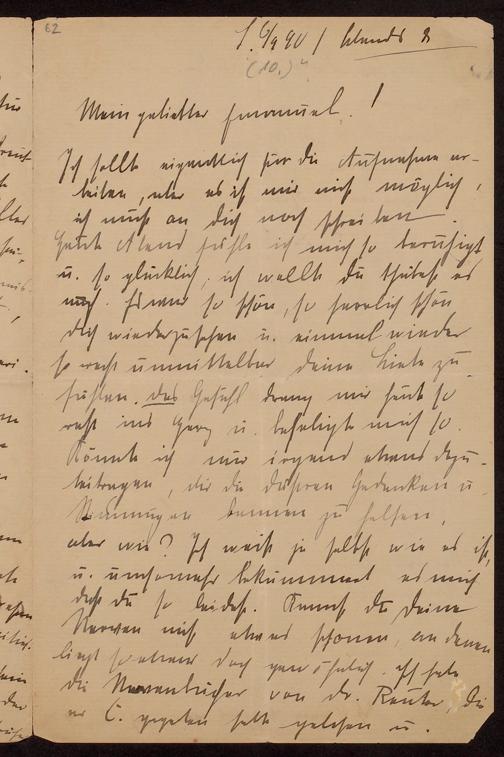 62
S. 6/9 90 / Abends 8
(10.)
Mein geliebter Emanuel!
Ich sollte eigentlich für die Aufnahme ar-
beiten, aber es ist mir nicht möglich,
ich muß an dich noch schreiben.
Heute Abend fühle ich mich so beruhigt
u. so glücklich, ich wollte du thätest es
auch. Es war so schön, so herrlich schön
dich wiederzusehen u. einmal wieder
so recht unmittelbar deine Liebe zu
fühlen. Das Gefühl drang mir heute so
recht ins Herz u. beseligte mich so.
Könnte ich nur irgend etwas dazu
beitragen, dir die düsteren Gedanken u.
Stimmungen bannen zu helfen,
aber wie? Ich weiß ja selbst wie es ist,
u. umsomehr bekümmert es mich
daß du so leidest. Kannst du deine
Nerven nicht etwas schonen, an denen
liegt so etwas doch gewöhnlich. Ich habe
die Bücher von dr. Reuter, die
er C. gegeben hatte gelesen u.